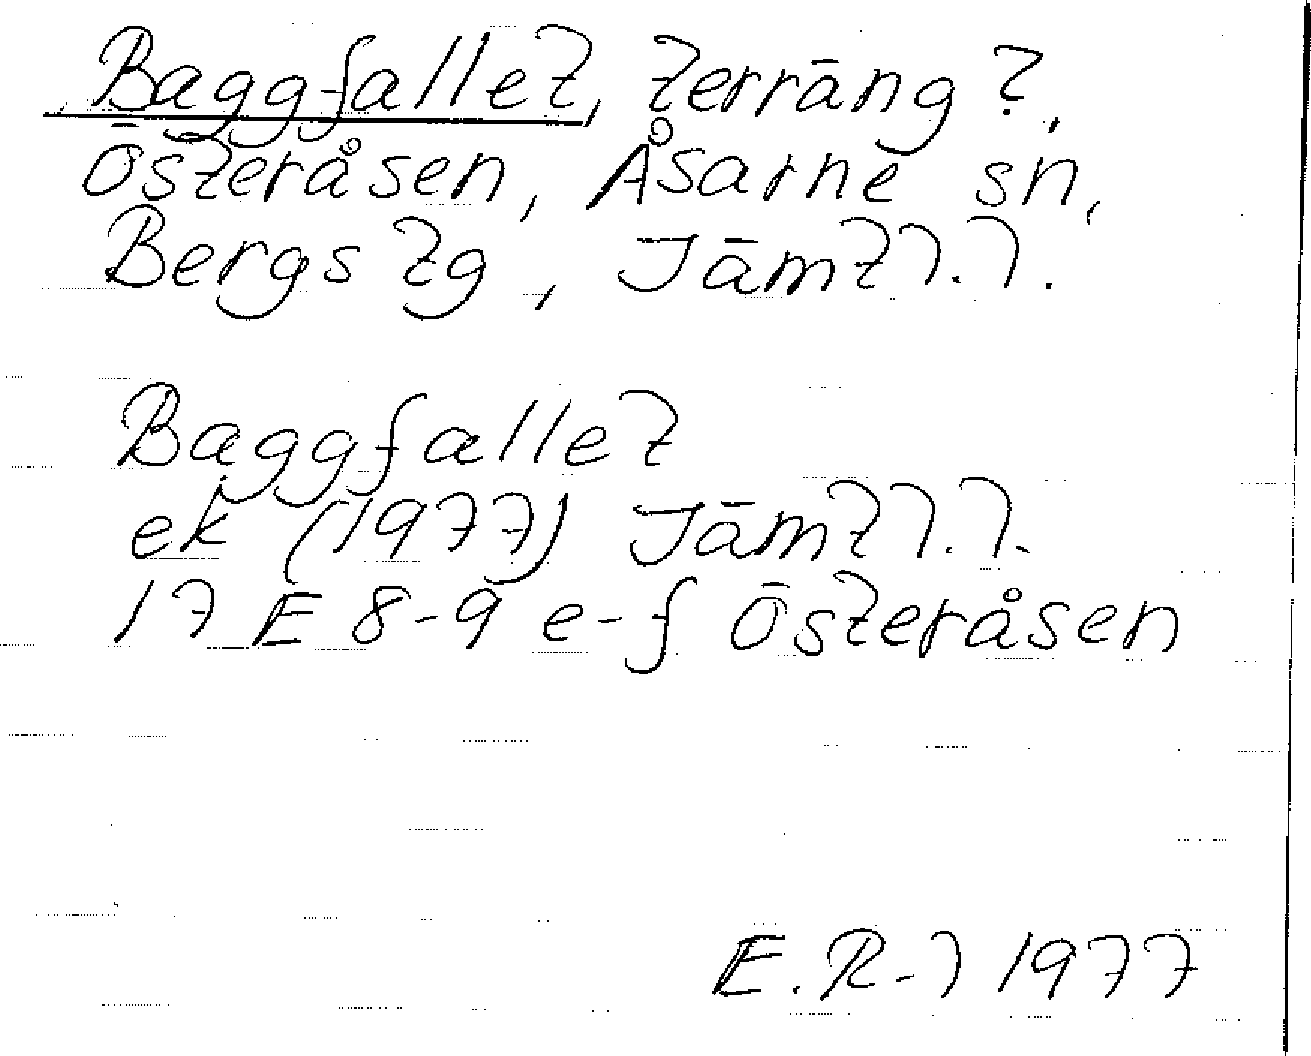 Baggfallet, terräng ?,
Österåsen, Åsarne sn,
Bergs tg, Jämtl.l.
Baggfallet
ek (1977) Jämtl.l.
17 E 8-9 e-f Österåsen
E.R-l 1977